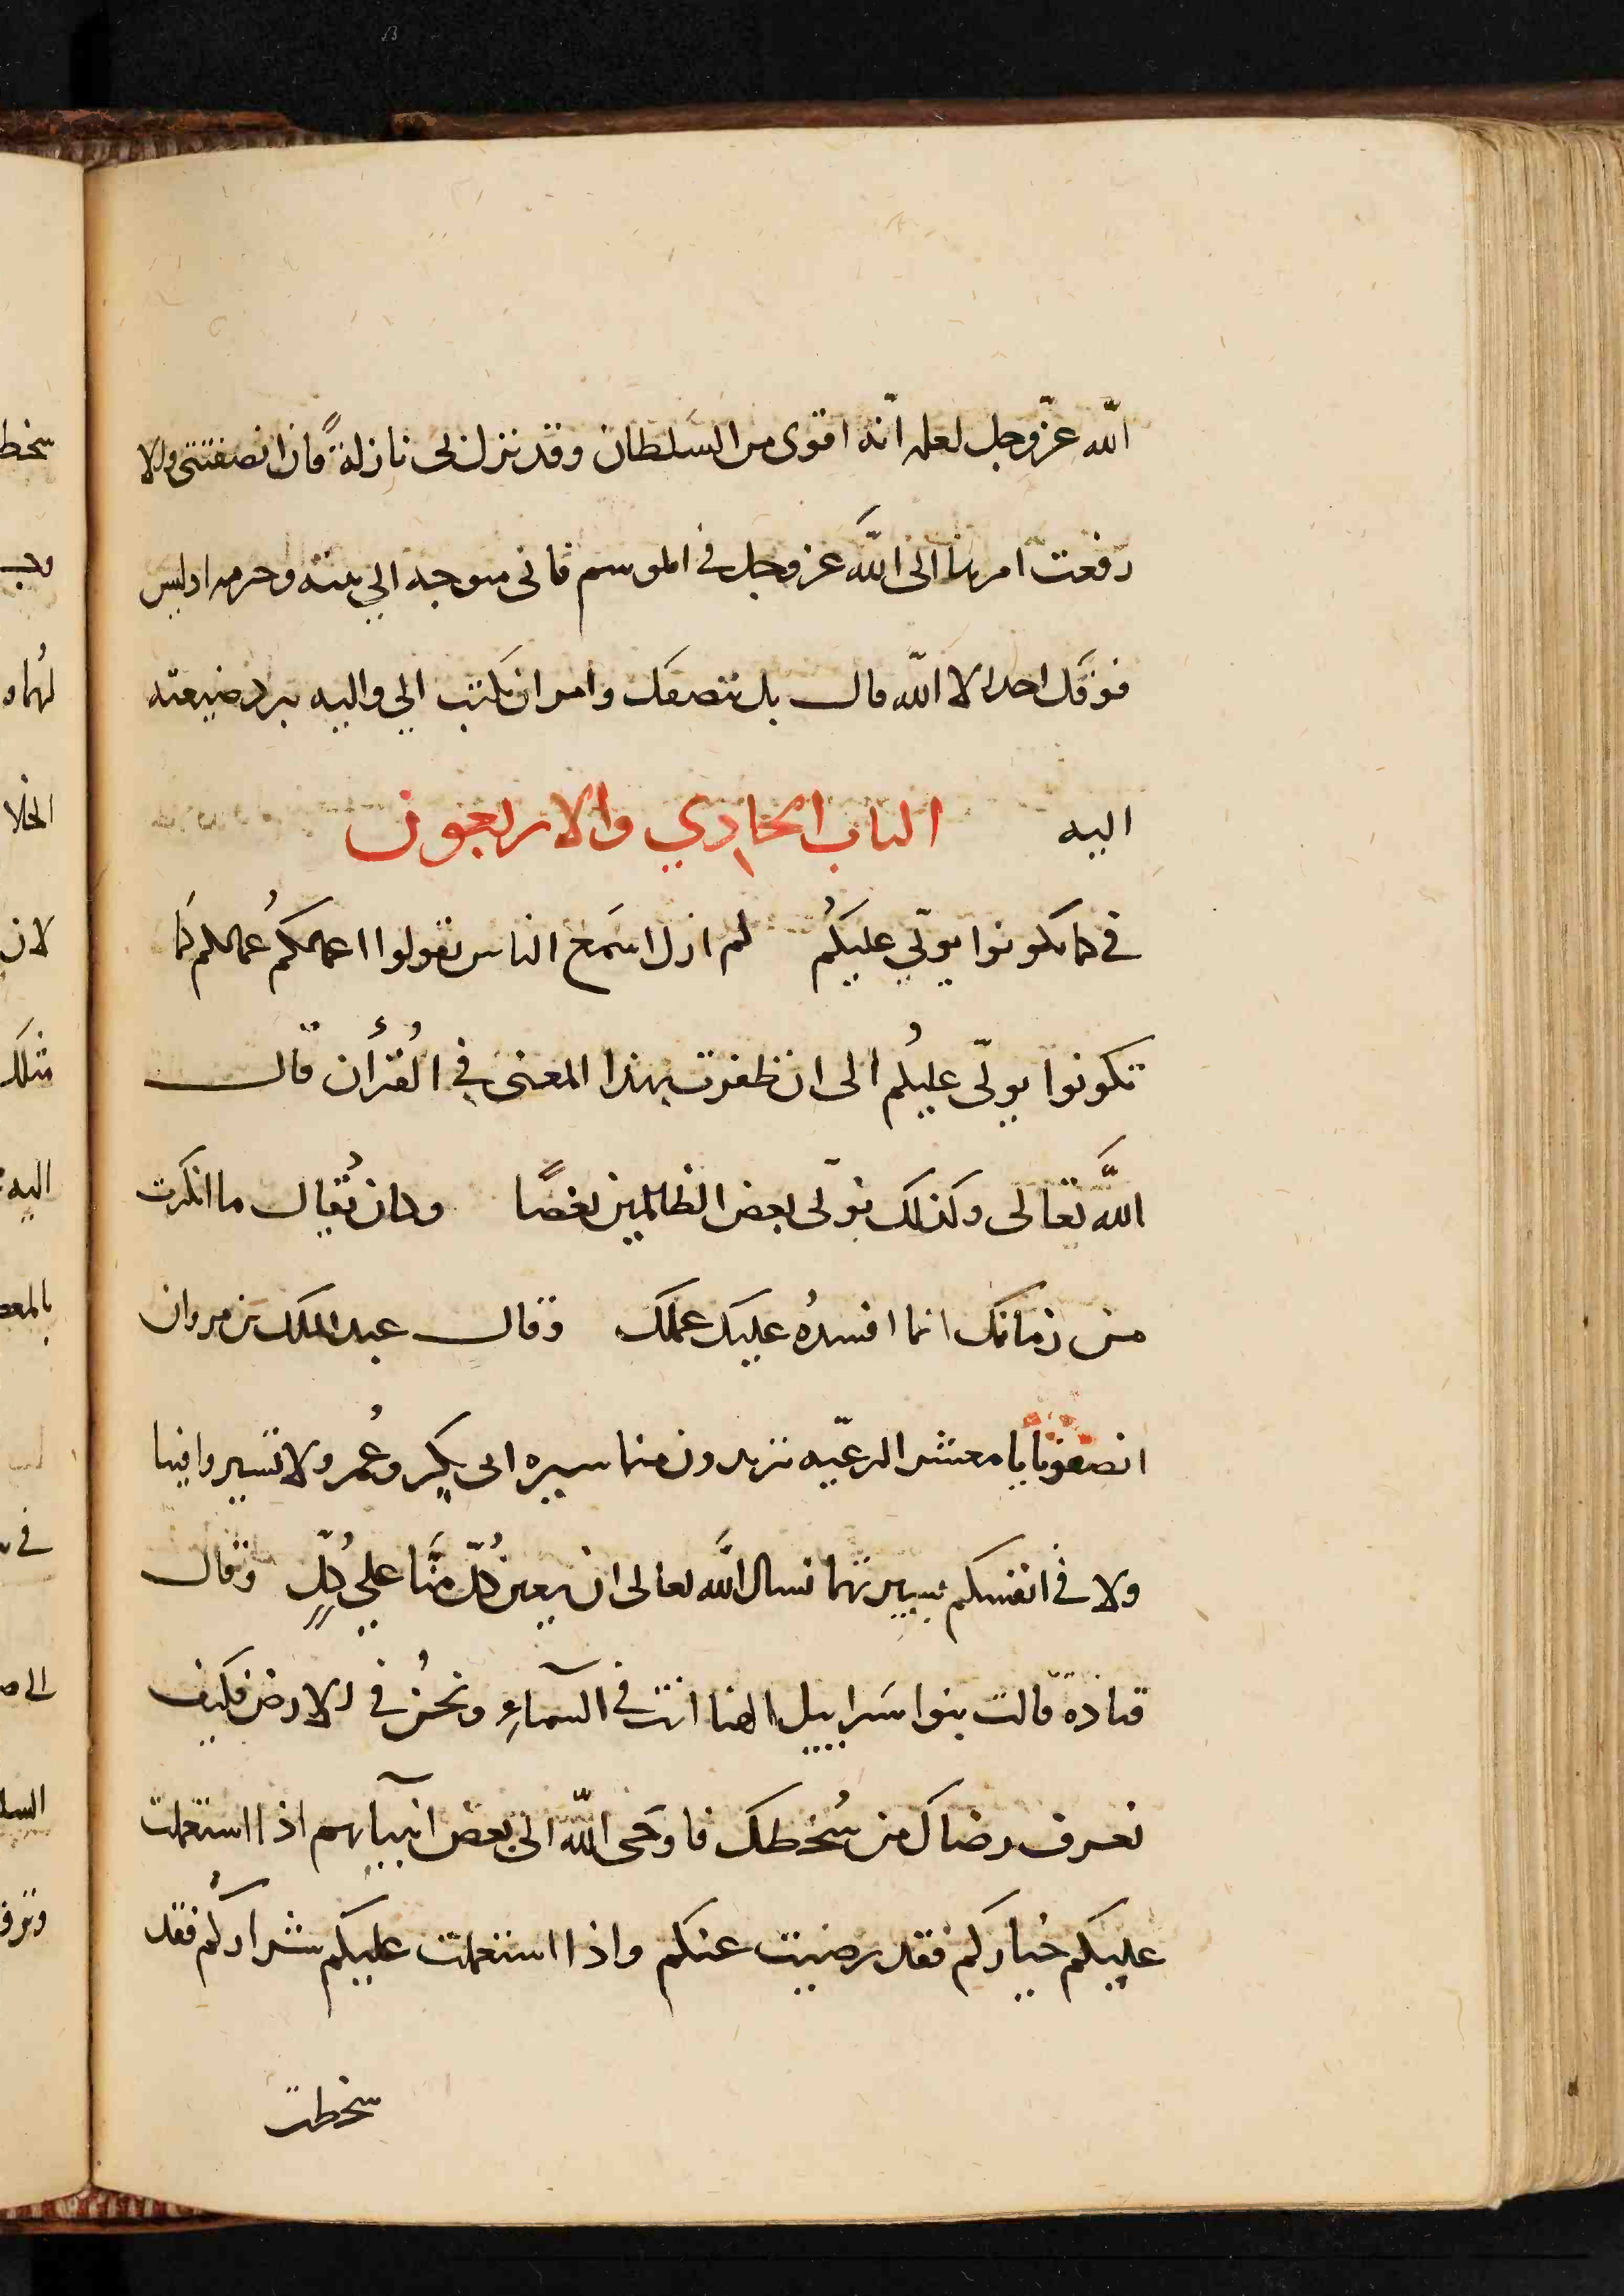 الله عزّ وجل لعلمه انّه اقوى من السلطان وقد نزل بى نازلةً فان انصفتنى والا
رفعت امرها الى الله عز وجل فى الموسم فانى متوجه الي بيته وحرمه اد ليس
فوقك احدا الا الله قال بل ننصفك وامر ان يكتب الي واليه برد ضيعته
اليه الباب الحادي والاربعون
فى كما تكونوا يولّي عليكُم لم ازل اسمع الناس يقولوا اعمالكُم عمالكم كما
تكونوا يولّى عليكُم الى ان ظفرت بهذا المعنى في القُرأن قال
اللَّه تعالى وكذلك نولّى بعض الظالمين بعضًا وكان يُقال ما انكرت
من زمانك انما افسدُه عليك عملك وقال عبد الملك بن مروان
انصفونا يا معشر الرعيّه تريدون منا سيره ابى بكرٍ وعُمر ولا تسيروا فينا
ولا فى انفسكم بسيرتهما نسال اللَّه تعالى ان يعين كُلّ منَّا علي كُلٍّ وقال
قتادة قالت بنوا سَراييل الهنا انت فى السمآءِ ونحنُ فى الارض فكيف
نعرف رضاك من سُخطك فاوحَى اللّه الى بعض انبيآيهم اذا استعملت
عليكم خياركم فقد رضيت عنكم واذا استعملت عليكم شراركُم فقد
سخطت
سخط
لان
اليه